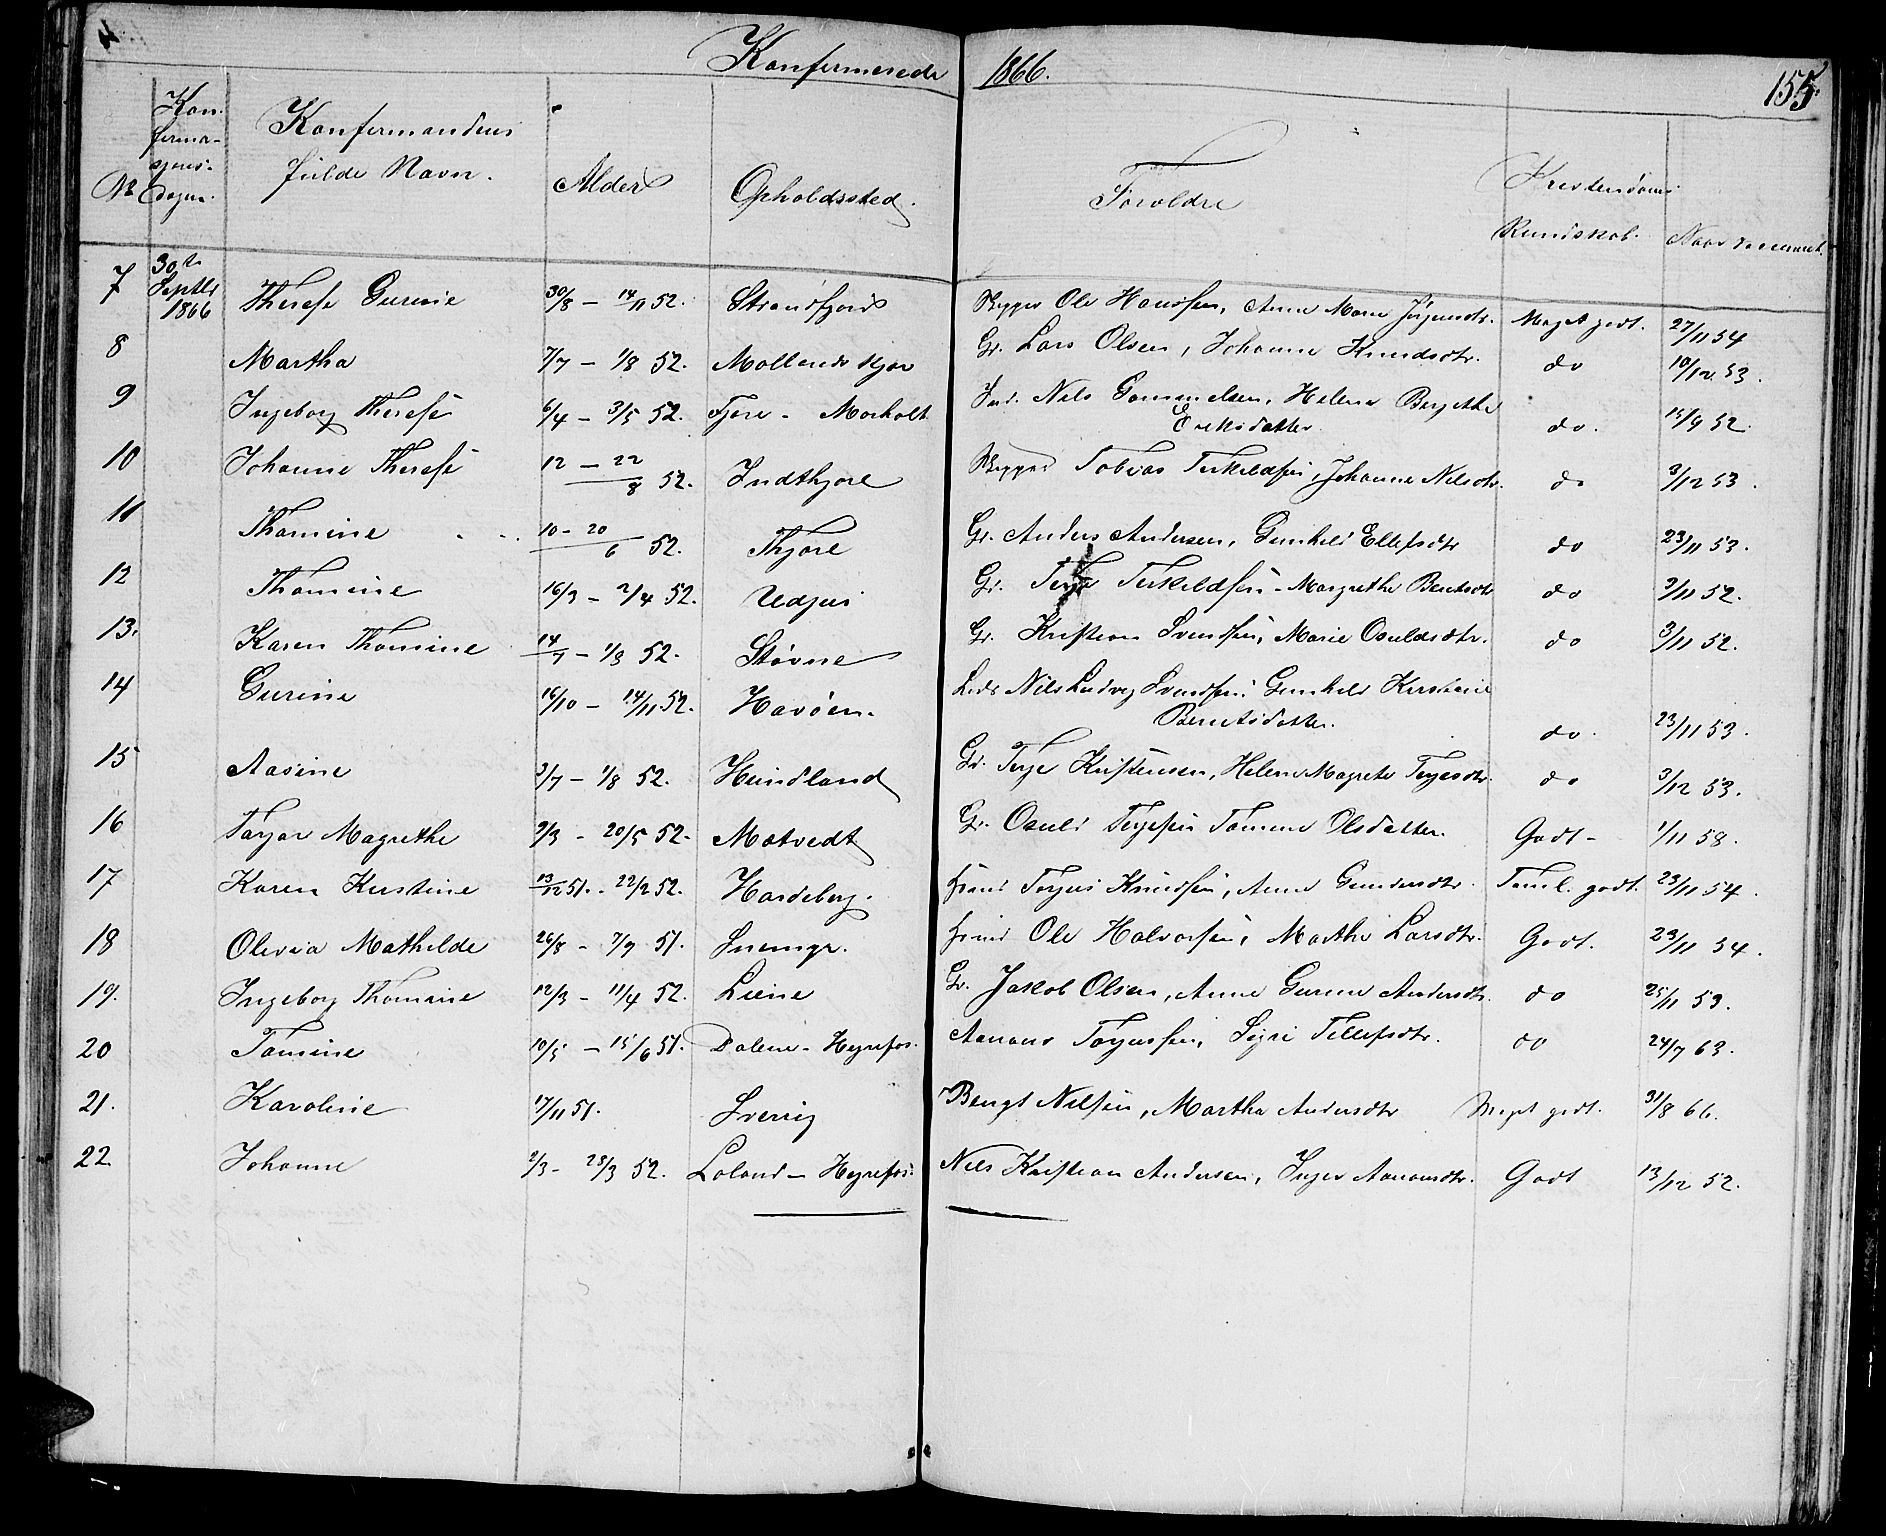 Konfermerede 1866. 155.
No Konfermasjons-dagen. Konfermandens fulde Navn. Alder Opholdssted. Foreldre Kristendoms Kundskab. Naar vaccineret.
7 30te Septbr 1866 Therese Gurine 30/8 – 14/11 52. Strandfjord Skipper Ole Hansen, Anne Marie Jørgensdtr. Meget godt. 27/11 54
8 Martha 7/7 – 1/8 52. Mollands Gr. Lars Olsen, Johanne Knudsdtr. do 10/12 53.
9 Ingeborg Therese 6/4 – 3/5 52. Fjære - Morholt Ind. Nils Gommelsen, Helene Bergithe Eriksdatter. do. 15/9 52.
10 Johanne Therese 12 – 22/8 52. Indtkjore Skipper Tobias Terkeldsen, Johanne Nilsdtr. do 3/12 53.
11 Thomine 10 – 20/6 52. Thjore Gr. Anders Andersen, Gunhild Ellefsdtr do 23/11 53.
12 Thomine 16/3 – 2/4 52. Gr. Terje Terkeldsen - Margrethe Bentsdtr do 3/11 52.
13. Karen Thomine 14/7 – 1/8 52. Støvne Gr. Kristian Svendsen, Marie Osuldsdtr. do 3/11 52.
14 Gurine 16/10 – 14/11 52. Havøen. Nils Ludvig Svendsen, Gunhild Kirstine Berntsdatter. do. 23/11 53.
15 Aasine 3/7 – 1/8 52. Hundland Gr. Terje Kristensen, Helene Magrete Terjesdtr. do 3/12 53.
16 Tarjer Magrethe 9/3 – 20/5 52. Motvedt Gr. Osuld Terjesen Tomine Olsdatter. Godt – 1/11 58.
17 Karen Kirstine 13/12 51. - 22/2 52. Hardeberg. Torjus Knudsen, Anne Gundersdtr. Teml. godt. 23/11 54.
18 Olevia Mathilde 26/8 – 7/9 51. Ole Halvorsen, Marthe Larsdtr. Godt. 23/11 54.
19. Ingeborg Thomine 12/3 – 11/4 52. Liene Gr. Jakob Olsen, Anne Gurine Andersdtr. do 25/11 53.
20 Tomine 10/5 – 15/6 51. Dolene - Heyrefos. Aanon Torjussen, Sigri Tellefsdtr. do 24/7 63.
21. Karoline 17/11 51. Sverrig Bengt Nilsen, Martha Andersdtr Meget godt. 31/8 66.
22. Johanne 2/3 – 28/3 52. Loland – Heyrefos. Nils Kristian Andersen, Inger Aanonsdtr. Godt 13/12 52.